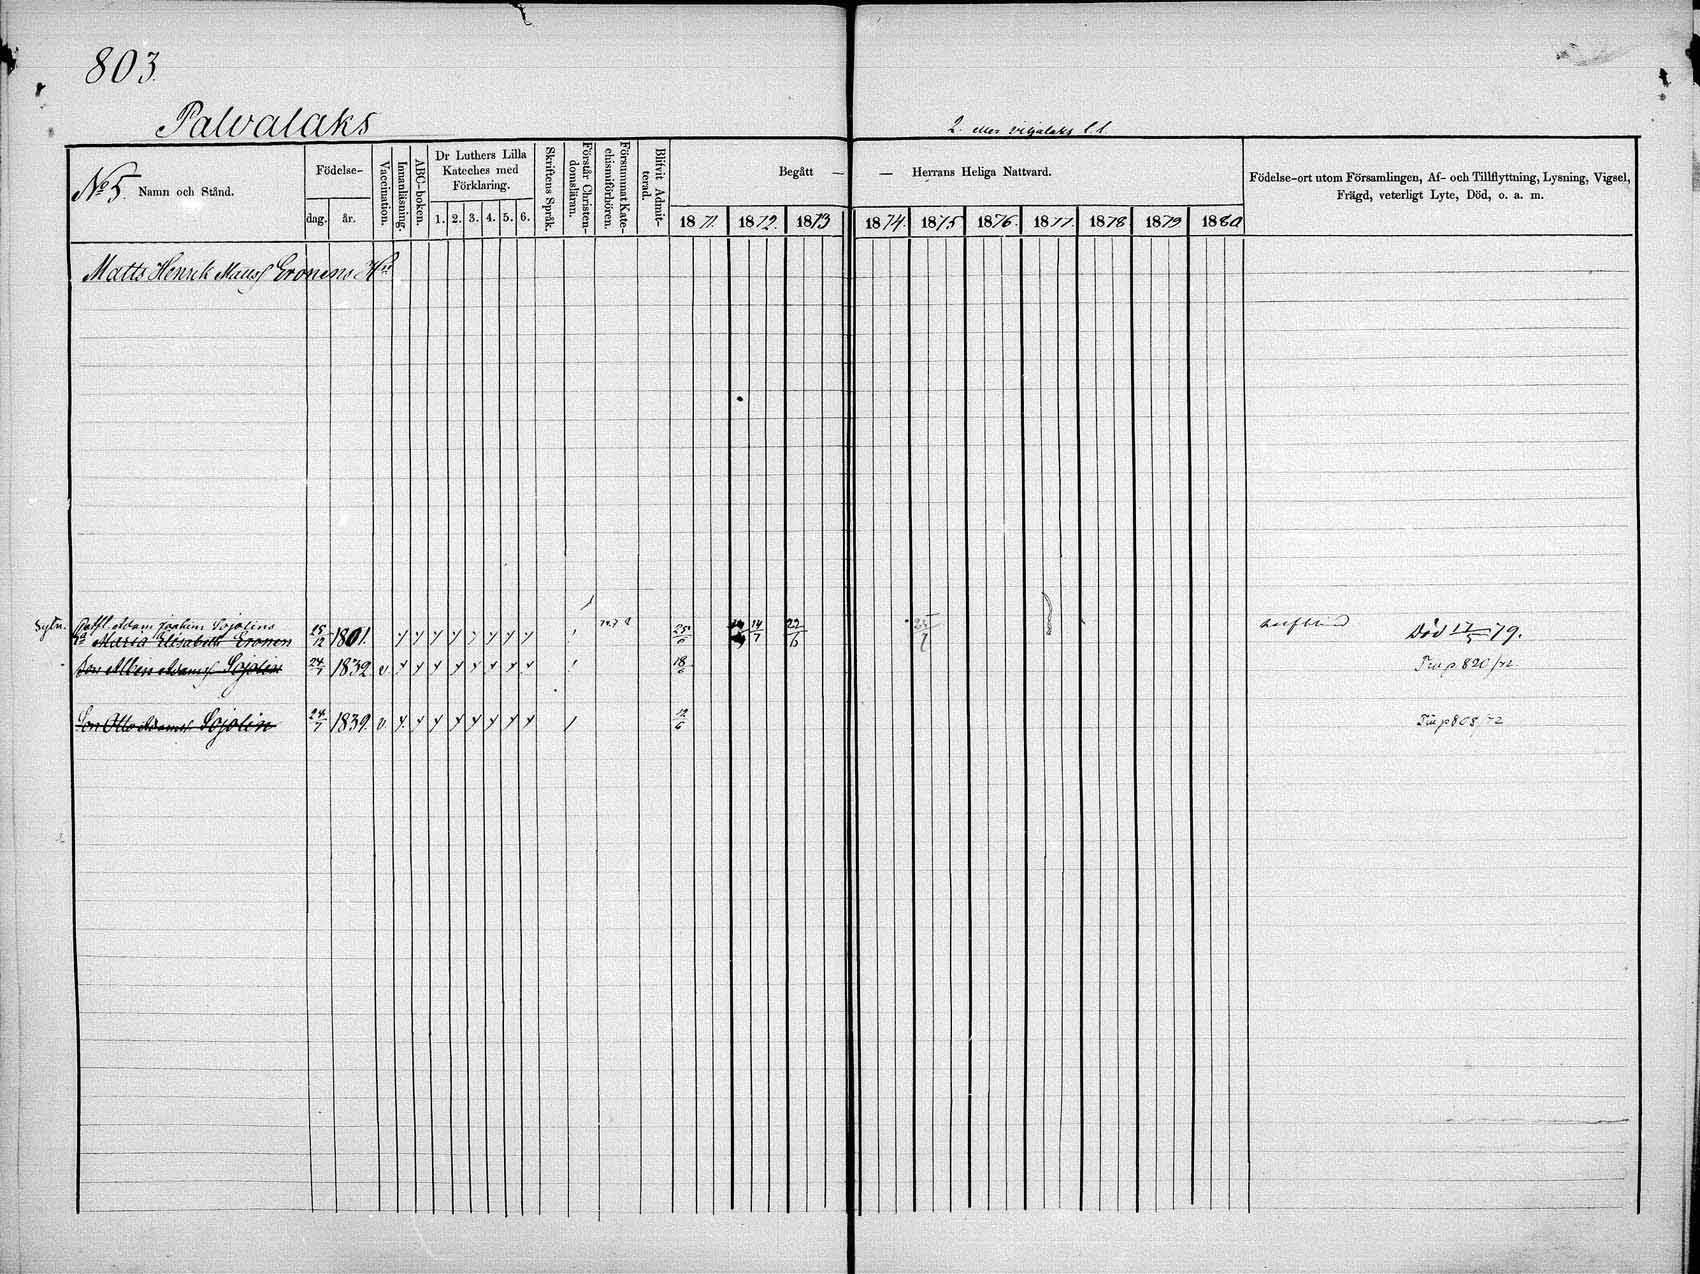 803.
Palvalaks
2. eller
No 5. Namn och Stånd.
Födelse-
dag. år.
Vaccination.
Innanläsning.
ABC-boken.
Dr Luthers Lilla
Kateches med
Förklaring.
1. 2. 3. 4. 5. 6.
Skriftens Språk.
Förstår Christen-
domsläran.
Försummat Kate-
chismiförhören.
Blifvit Admit-
terad.
Begått — — Herrans Heliga Nattvard.
1871. 1872. 1873 1874. 1875 1876. 1877. 1878 1879 1880
Födelse-ort utom Församlingen, Af- och Tillflyttning, Lysning, Vigsel,
Frägd, veterligt Lyte, Död, o. a. m.
Matts Henrik Matts Eronens
Sytn. Adam Joachim Sojolins
Maria Elisabeth Eronen 25/12 1801. 25/6 14/7 22/6 Död 17/5 79.
Son Alben Adams Sojolin 24/7 1839 v. 18/6 p 820/72.
Son Otto Adams Sojolin 24/7 1839. v. 12/6 p 808/72